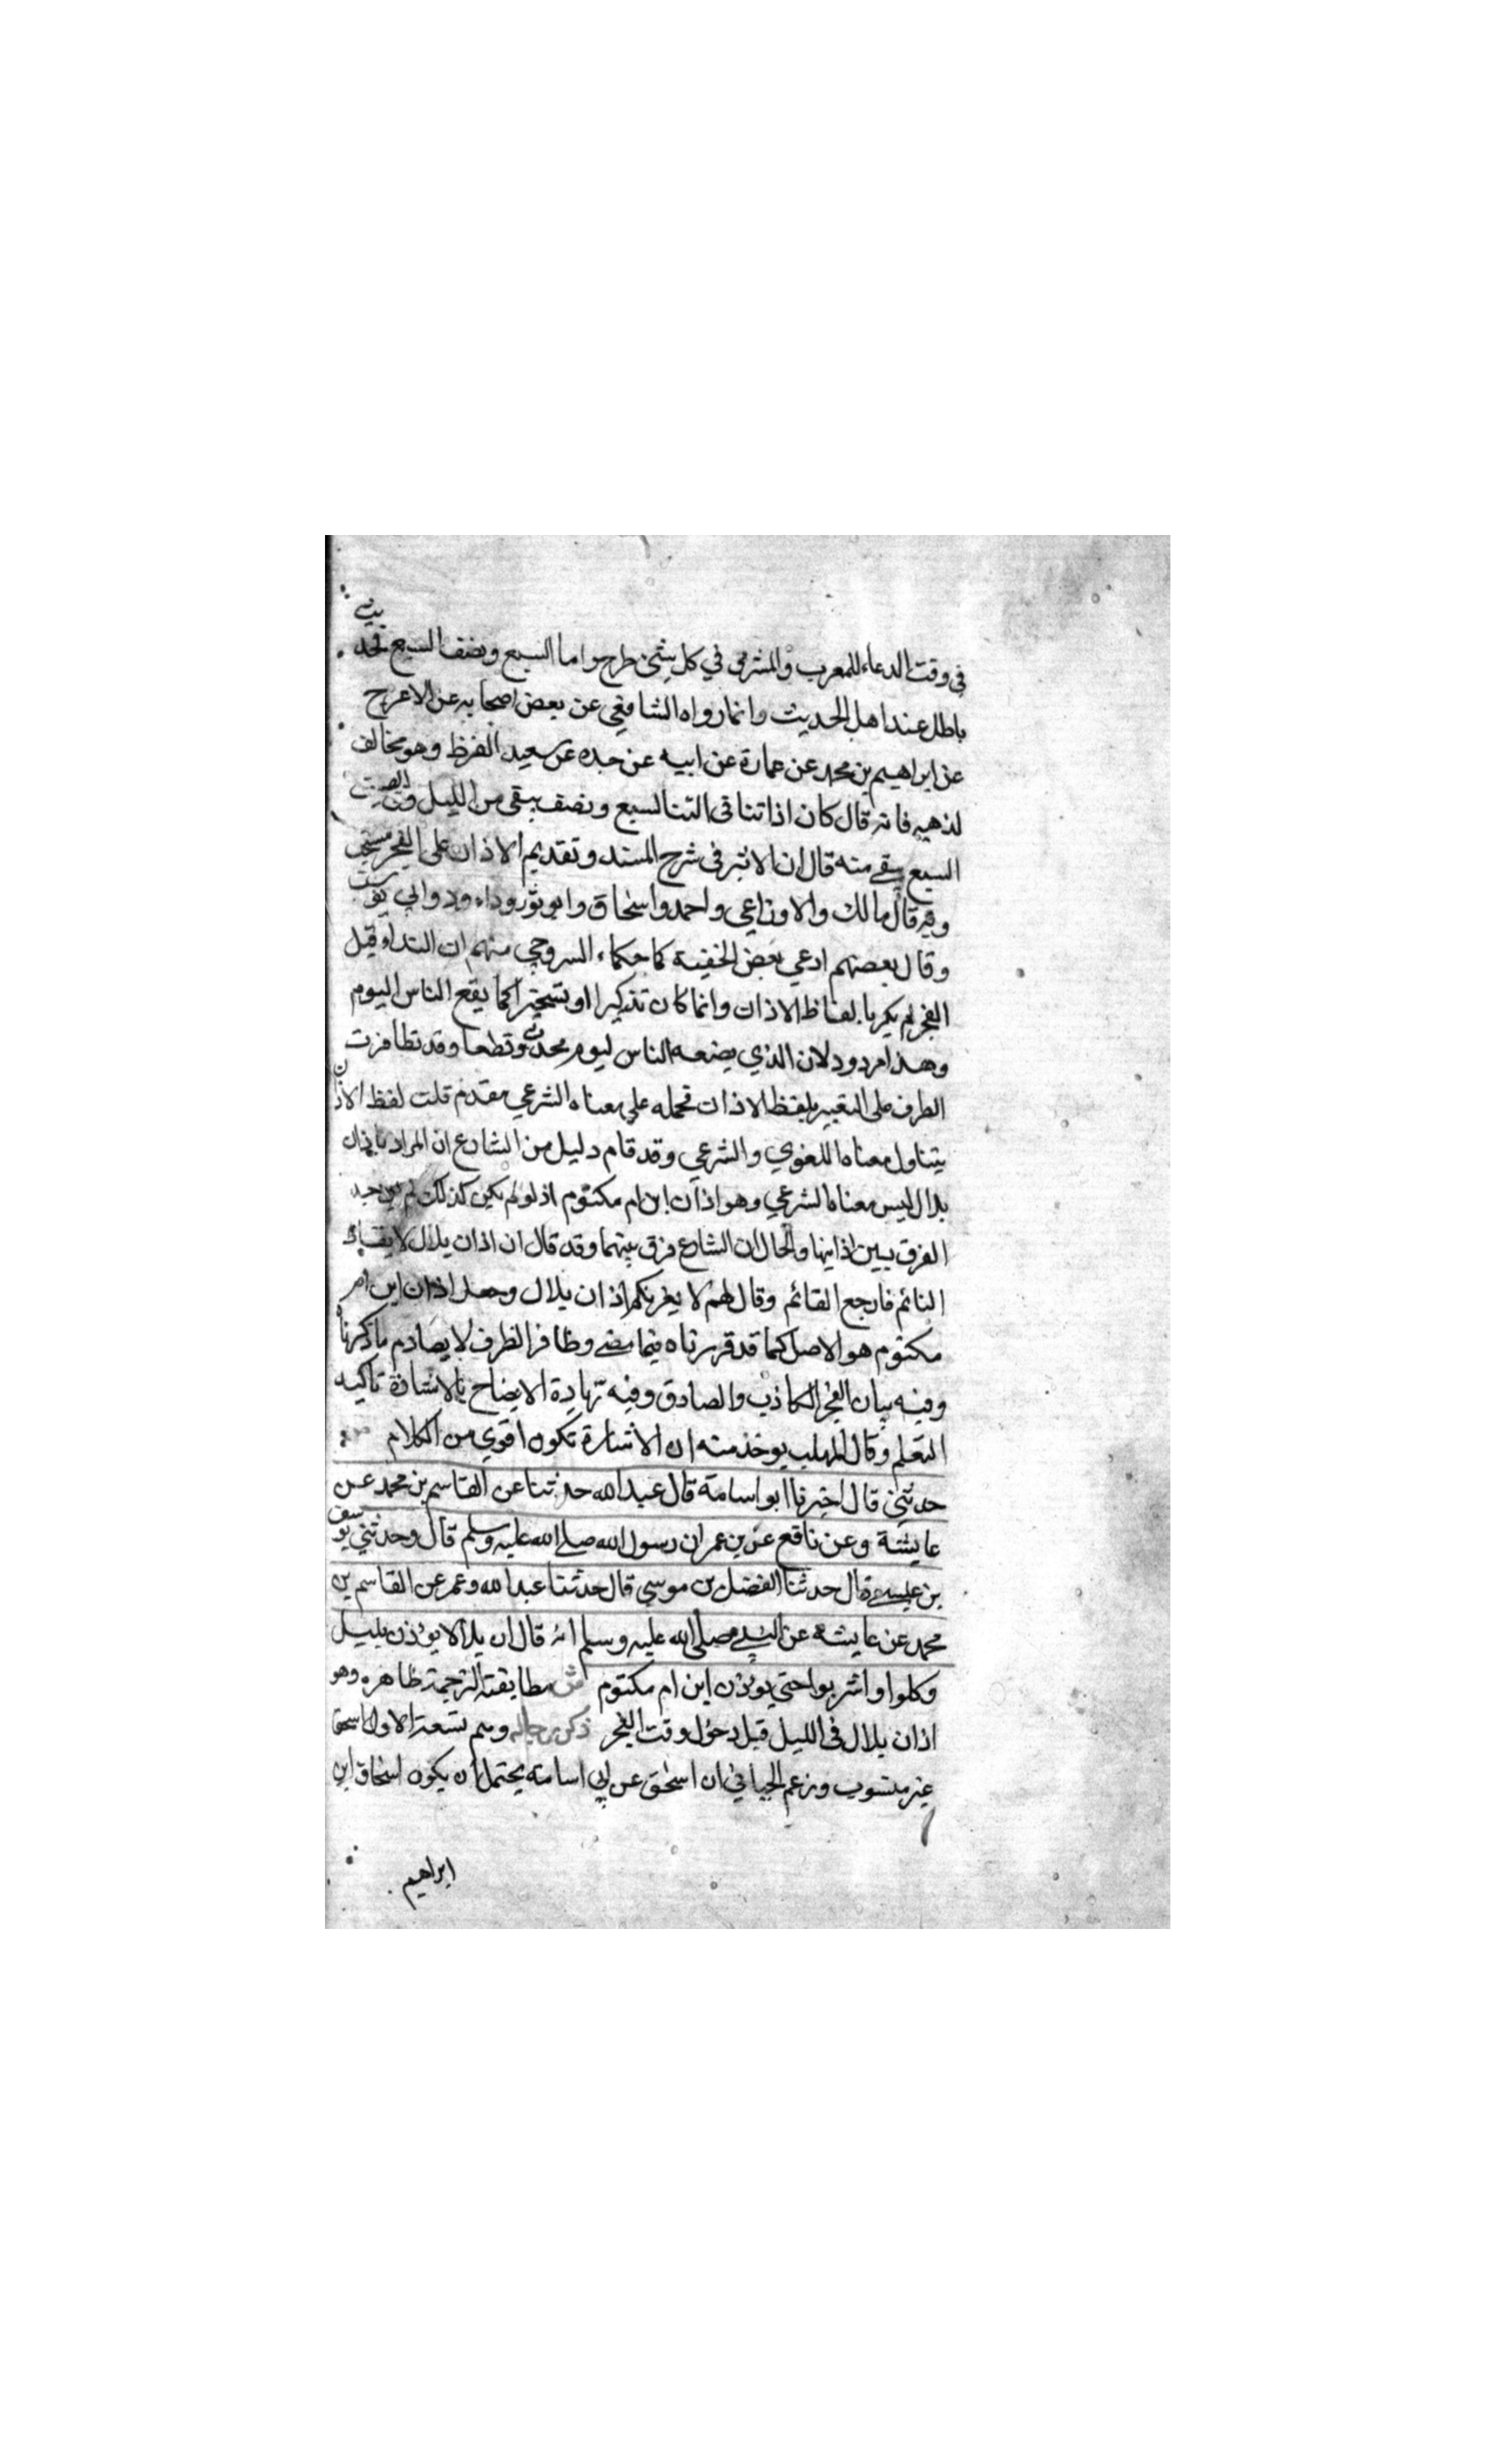 في وقت الدعاء للمغرب والمشرق في كل شئ طرح واما السبع ونصف السبع فحديث
باطل عند اهل الحديث وانما رواه الشافعي عن بعض اصحابه عن الاعرج
عن ابراهيم بن محمد عن عمارة عن ابيه عن جده عن سعيد القرظ وهو مخالف
لذهبه فانه قال كان اذاننا في الشتا لسبع ونصف يبقى من الليل وفي الصيف
السبع يبقي منه قال ابن الاثير في شرح المسند وتقديم الاذان على الفجر مستحب
وبه قال مالك والاوزاعي واحمد واسحاق وابو ثور وداود وابي يوسف
وقال بعضهم ادعي بعض الحنفية كما حكاه السروجي منهم ان النداء قبل
الفجر لم يكن بالفاظ الاذان وانما كان تذكيرا او تسحيرا كما يقع الناس اليوم
وهذا مردود لان الذي يصنعه الناس ليوم محدث قطعا وقد تظافرت
الطرف على التعبير بلفظ الاذان فحمله علي معناه الشرعي مقدم قلت لفظ الاذان
يتناول معناه اللغوي والشرعي وقد قام دليل من الشارع ان المراد باذان
بلال ليس معناه الشرعي وهو اذان ابن ام مكتوم اذ لو لم يكن كذلك لم يوجد
الفرق بين اذانيها والحال ان الشارع فرق بينهما وقد قال ان اذان بلال لايقاظ
النائم فارجع القائم وقال لهم لا يغرنكم اذان بلال وجعل اذان ابن ام
مكتوم هو الاصل كما قد قررناه فيما مضي وظافر الطرف لا يصادم ماذكرنا
وفيه بيان الفجر الكاذب والصادق وفيه زيادة الايضاح بالاشارة تاكيد
التعلم وقال المهلب يوخذ منه ان الاشارة تكون اقوي من الكلام
حدثني قال اخبرنا ابو اسامة قال عبيد الله حدثنا عن القاسم بن محمد عن
عايشة وعن نافع عن بن عمر ان رسول الله صلى الله عليه وسلم قال وحدثني يوسف
بن عيسي قال حدثنا الفضل بن موسي قال حدثنا عبد الله وعمر عن القاسم بن
محمد عن عايشة عن النبي صلى الله عليه وسلم انه قال ان بلالا يوذن بليل
وكلوا واشربوا حتي يوذن ابن ام مكتوم ش مطابقته الترجمة ظاهره وهو
اذان بلال في الليل قبل دخول وقت الفجر ذكر رجاله وهم تسعة الاول اسحق
غير منسوب وزعم الجياني ان اسحق عن ابي اسامة يحتمل ان يكون اسحاق ابن
ابراهيم